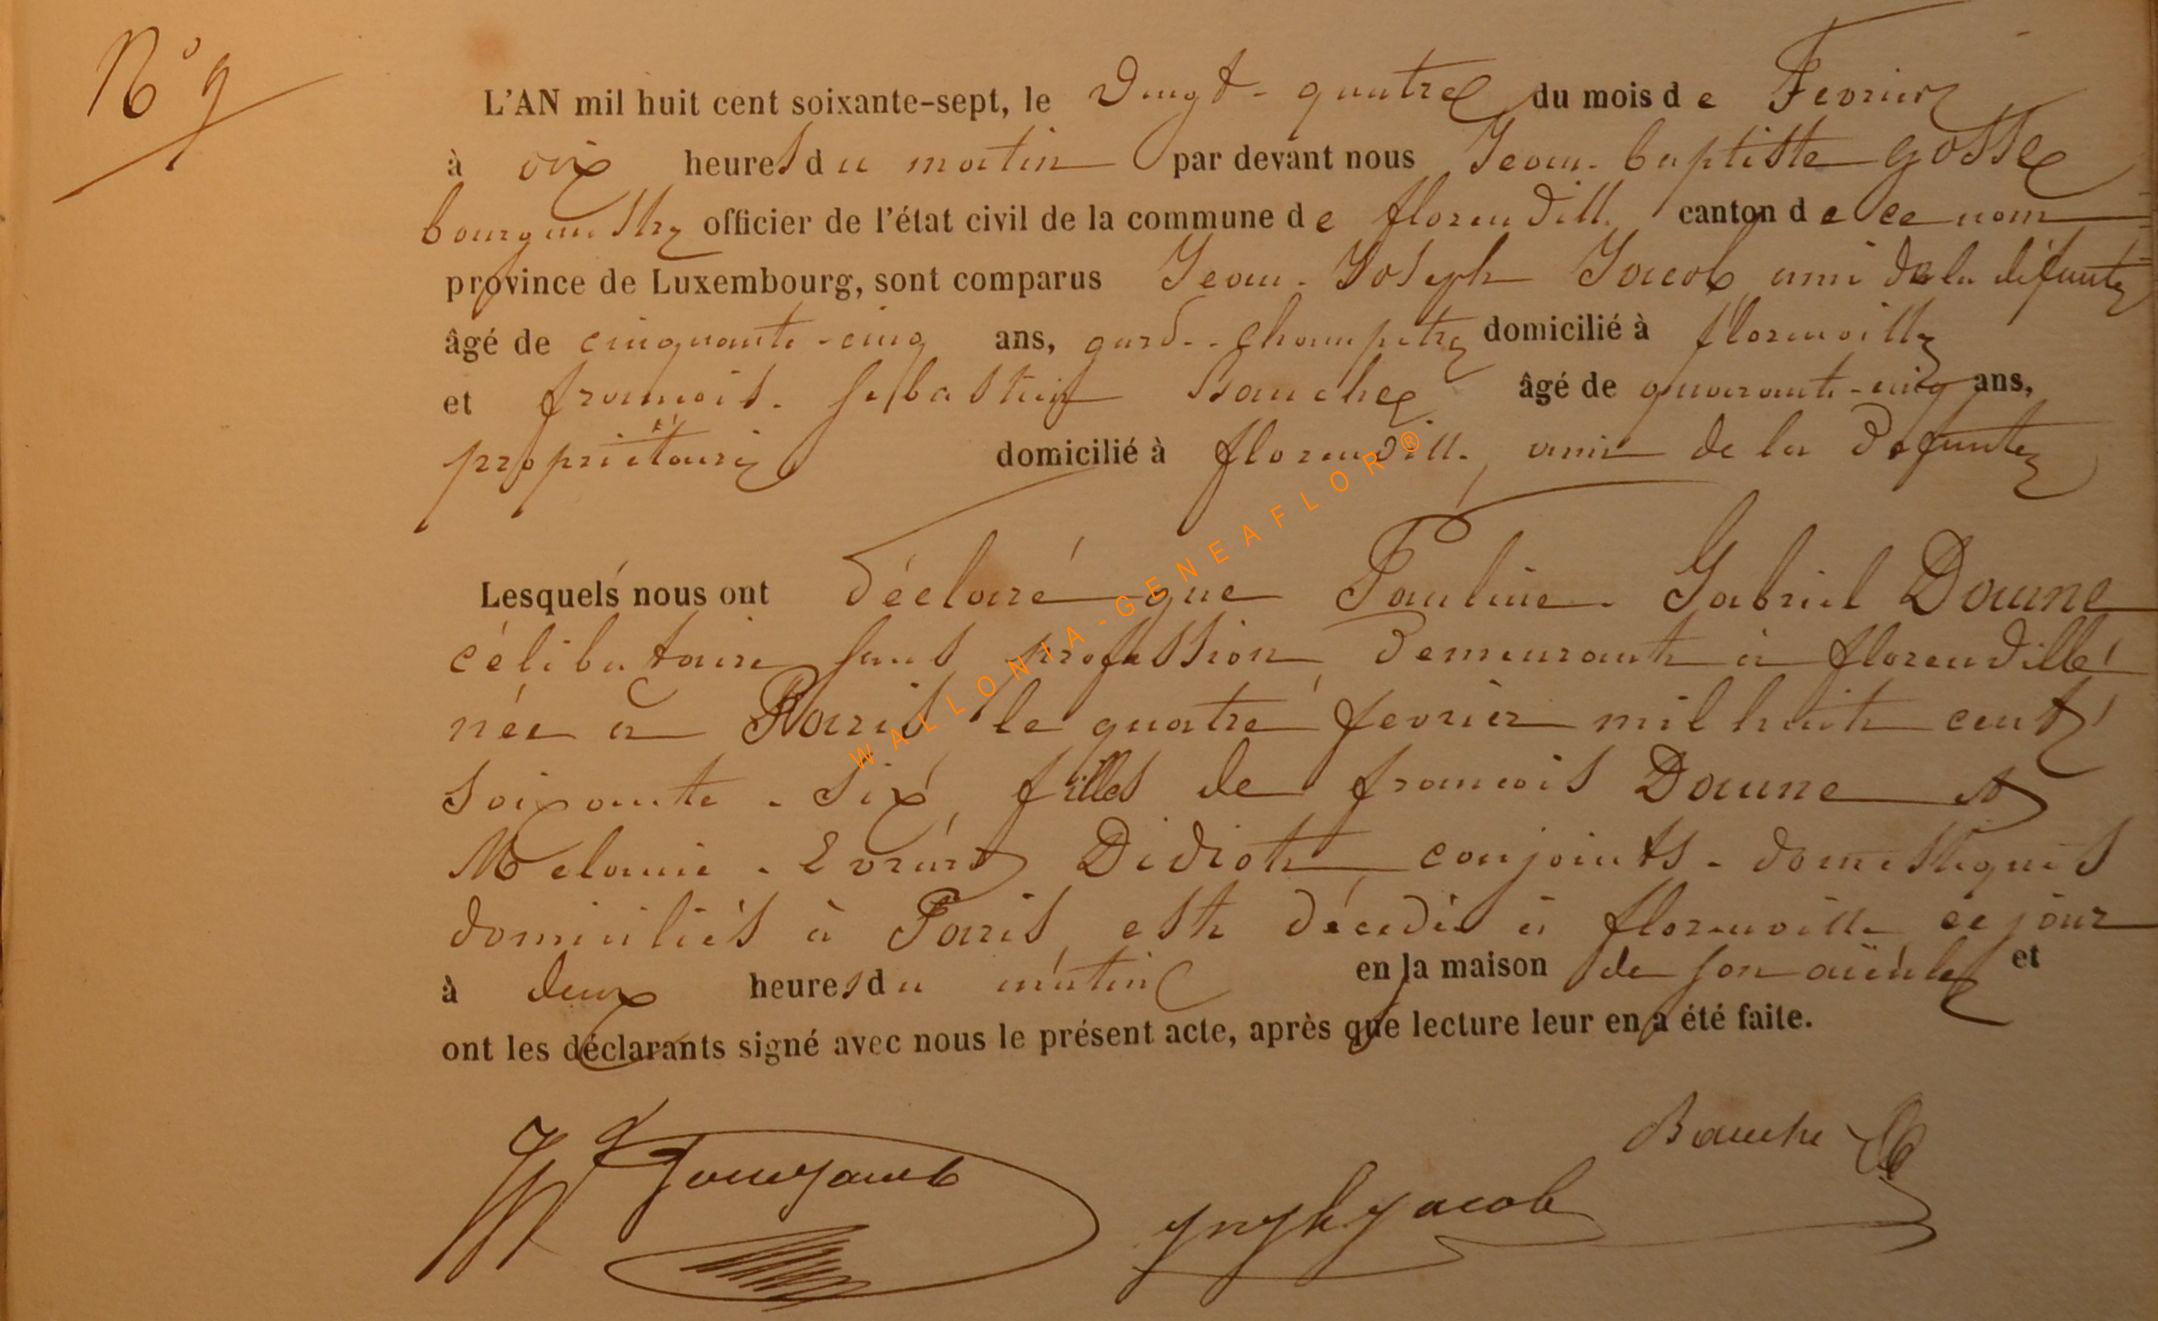 N° 9
L'AN mil huit cent soixante-sept, le vingt-quatre du mois de Fevrier
à dix heures du matin par devant nous Jean-baptiste gosse
bourgmestre officier de l'état civil de la commune de florenville canton de ce nom
province de Luxembourg, sont comparus Jean-Joseph Jacob ami de la défunte
âgé de cinquante-cinq ans, garde-champetre domicilié à florenville
et francois-sebastien Banche âgé de quarante-cinq ans,
propriétaire domicilié à florenville, ami de la défunte
Lesquels nous ont déclaré que Pauline-Gabriel Daune
célibataire sans profession demeurant à florenville
née à Paris le quatre fevrier mil huit cent
soixante-six, filles de francois Daune et
Melanie-Evrard Didiot conjoints-domestiques
domiciliés à Paris, est décédée à florenville ce jour
à deux heures du matin en la maison de son aieule et
ont les déclarants signé avec nous le présent acte, après que lecture leur en a été faite.
Banche
Jacob
WALLONIA-GENEAFLOR®